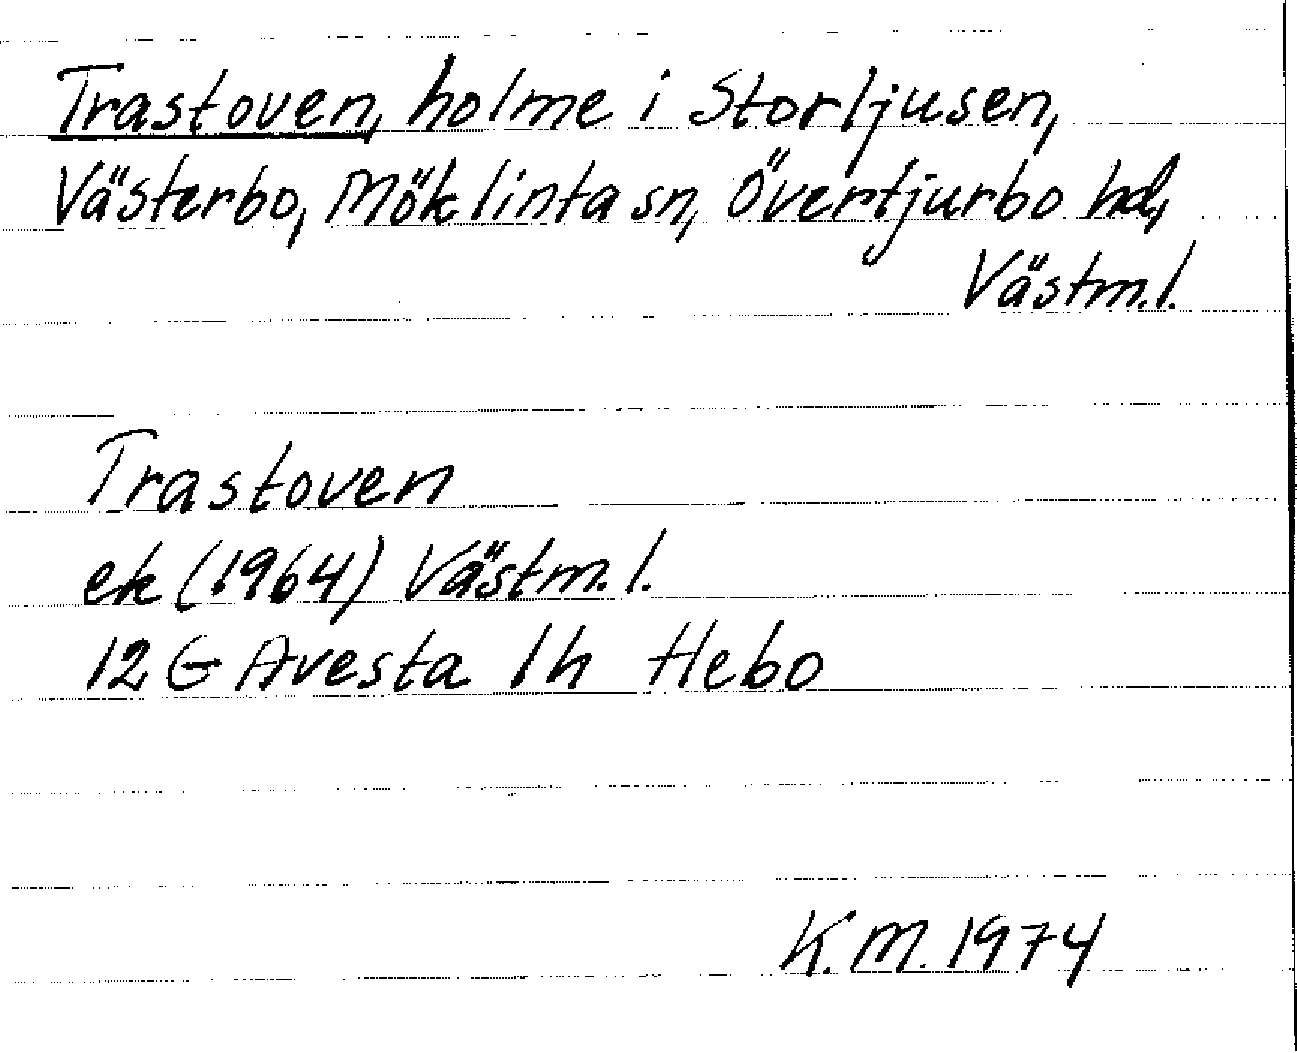 Trastoven, holme i Storljusen,
Västerbo, Möklinta sn, Övertjurbo hd,
Västm.l.
Trastoven
ek (1964) Västm.l.
12 G Avesta 1h Hebo
K.M. 1974